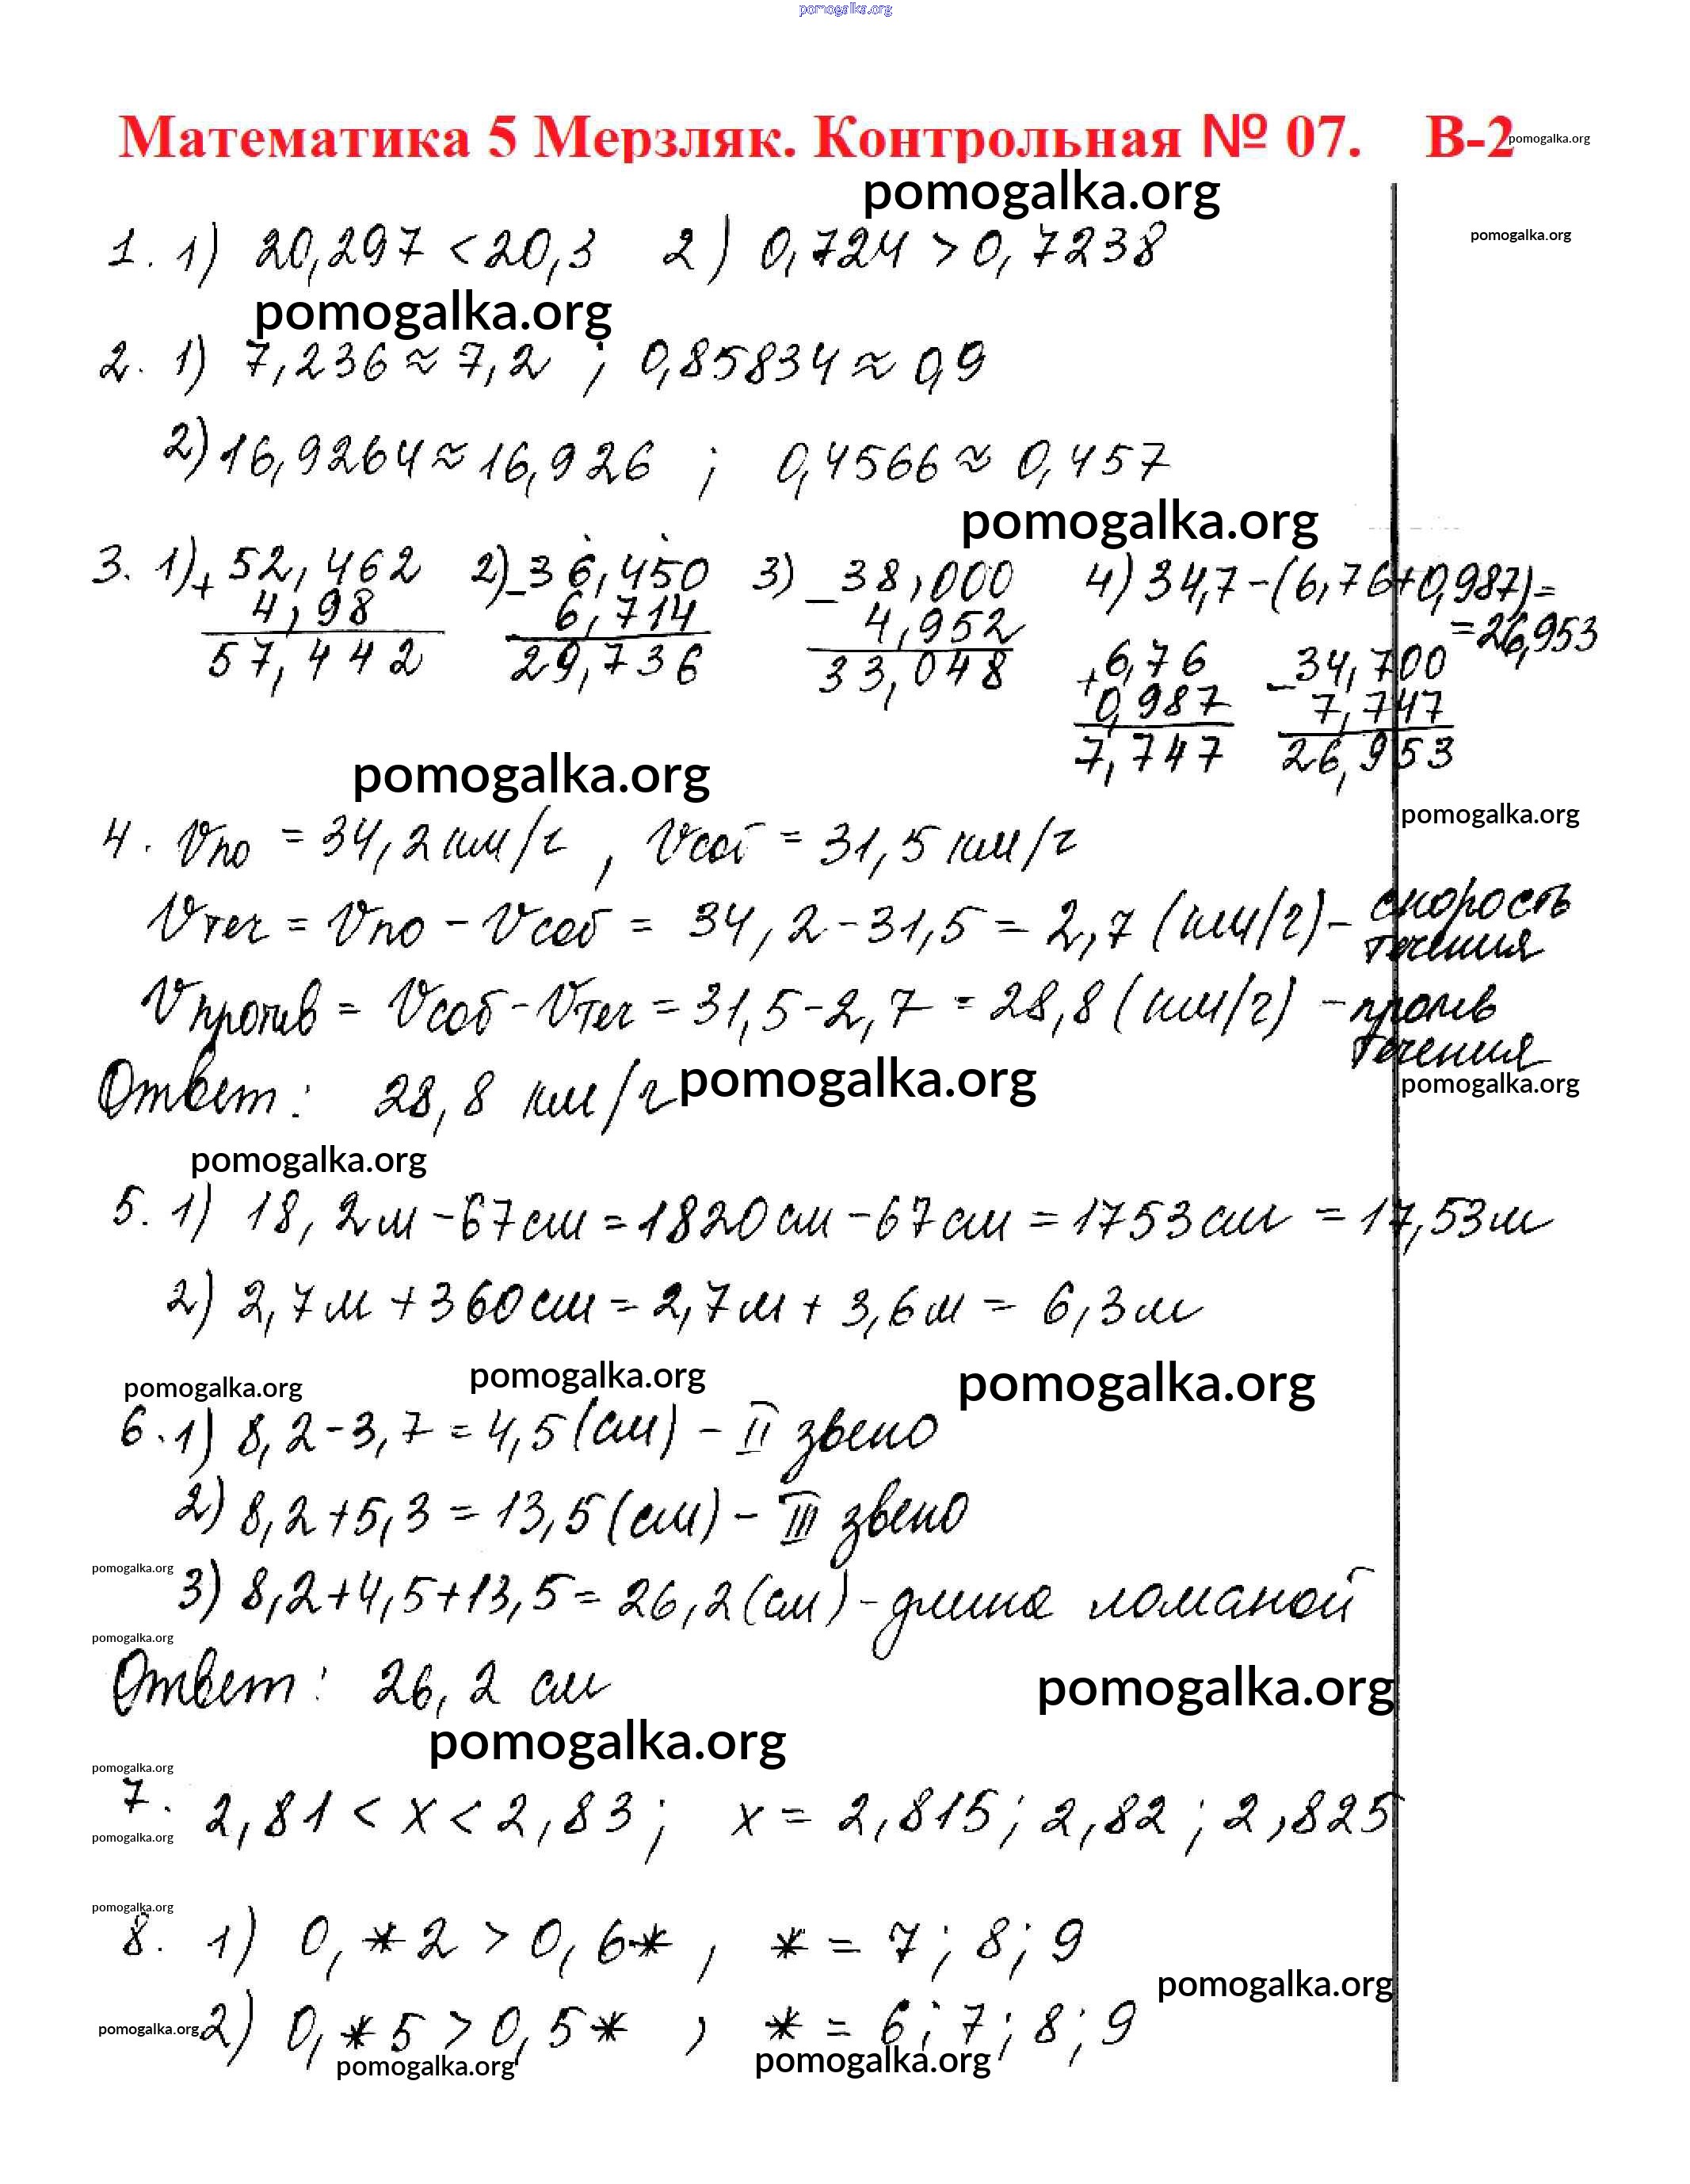 pomogalka.org
Математика 5 Мерзляк. Контрольная № 07. В-2
pomogalka.org
pomogalka.org
pomogalka.org
1. 1) 20,297 < 20,3 2) 0,724 > 0,7238
pomogalka.org
2. 1) 7,236 ≈ 7,2 ; 0,85834 ≈ 0,9
2) 16,9264 ≈ 16,926 ; 0,4566 ≈ 0,457
pomogalka.org
3. 1) + 52,462 2) - 36,450 3) - 38,000 4) 34,7 - (6,76 + 0,987) =
4,98 6,714 4,952 = 26,953
57,442 29,736 33,048 + 6,76 - 34,700
0,987 7,747
7,747 26,953
pomogalka.org
pomogalka.org
4. Vпо = 34,2 км/г , Vсоб = 31,5 км/г
Vтег = Vпо - Vсоб = 34,2 - 31,5 = 2,7 (км/г) - скорость
течения
Vпротив = Vсоб - Vтег = 31,5 - 2,7 = 28,8 (км/г) - против
течения
Ответ: 28,8 км/г
pomogalka.org
pomogalka.org
pomogalka.org
5. 1) 18,2 м - 67 см = 1820 см - 67 см = 1753 см = 17,53 м
2) 2,7 м + 360 см = 2,7 м + 3,6 м = 6,3 м
pomogalka.org
pomogalka.org
pomogalka.org
6. 1) 8,2 - 3,7 = 4,5 (см) - II звено
2) 8,2 + 5,3 = 13,5 (см) - III звено
pomogalka.org
3) 8,2 + 4,5 + 13,5 = 26,2 (см) - длина ломаной
pomogalka.org
Ответ: 26,2 см
pomogalka.org
pomogalka.org
pomogalka.org
7. 2,81 < x < 2,83; x = 2,815; 2,82; 2,825
pomogalka.org
pomogalka.org
8. 1) 0,*2 > 0,6* , * = 7; 8; 9
pomogalka.org
pomogalka.org
2) 0,*5 > 0,5* , * = 6; 7; 8; 9
pomogalka.org
pomogalka.org